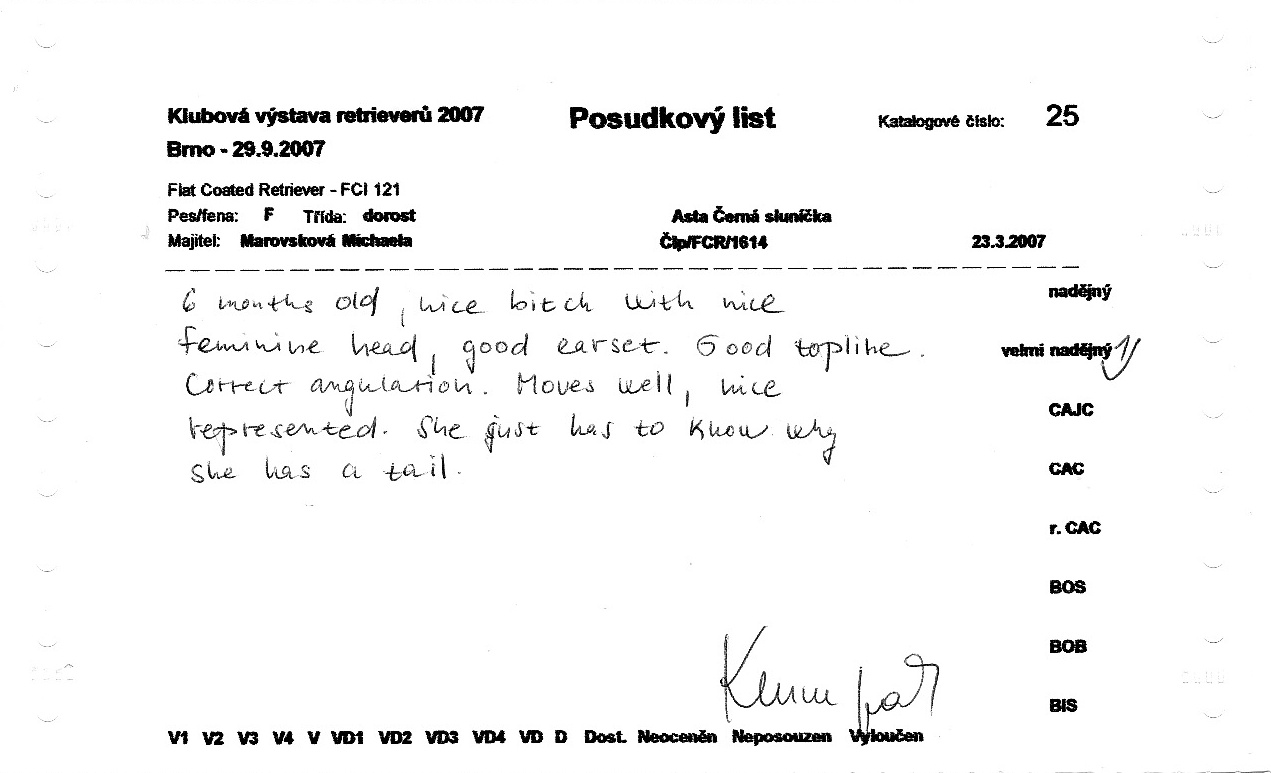 Klubová výstava retrieverů 2007 Posudkový list Katalogové číslo: 25
Brno - 29.9.2007
Flat Coated Retriever - FCI 121
Pes/fena: F Třída: dorost Asta Černá sluníčka
Majitel: Marovsková Michaela Člp/FCR/1614 23.3.2007
6 months old, nice bitch with nice
nadějný
feminine head, good earset. Good topline.
velmi nadějný 1
Correct angulation. Moves well, nice
CAJC
represented. She just has to know why
she has a tail.
CAC
r. CAC
BOS
BOB
BIS
V1 V2 V3 V4 V VD1 VD2 VD3 VD4 VD D Dost. Neoceněn Neposouzen Vyloučen